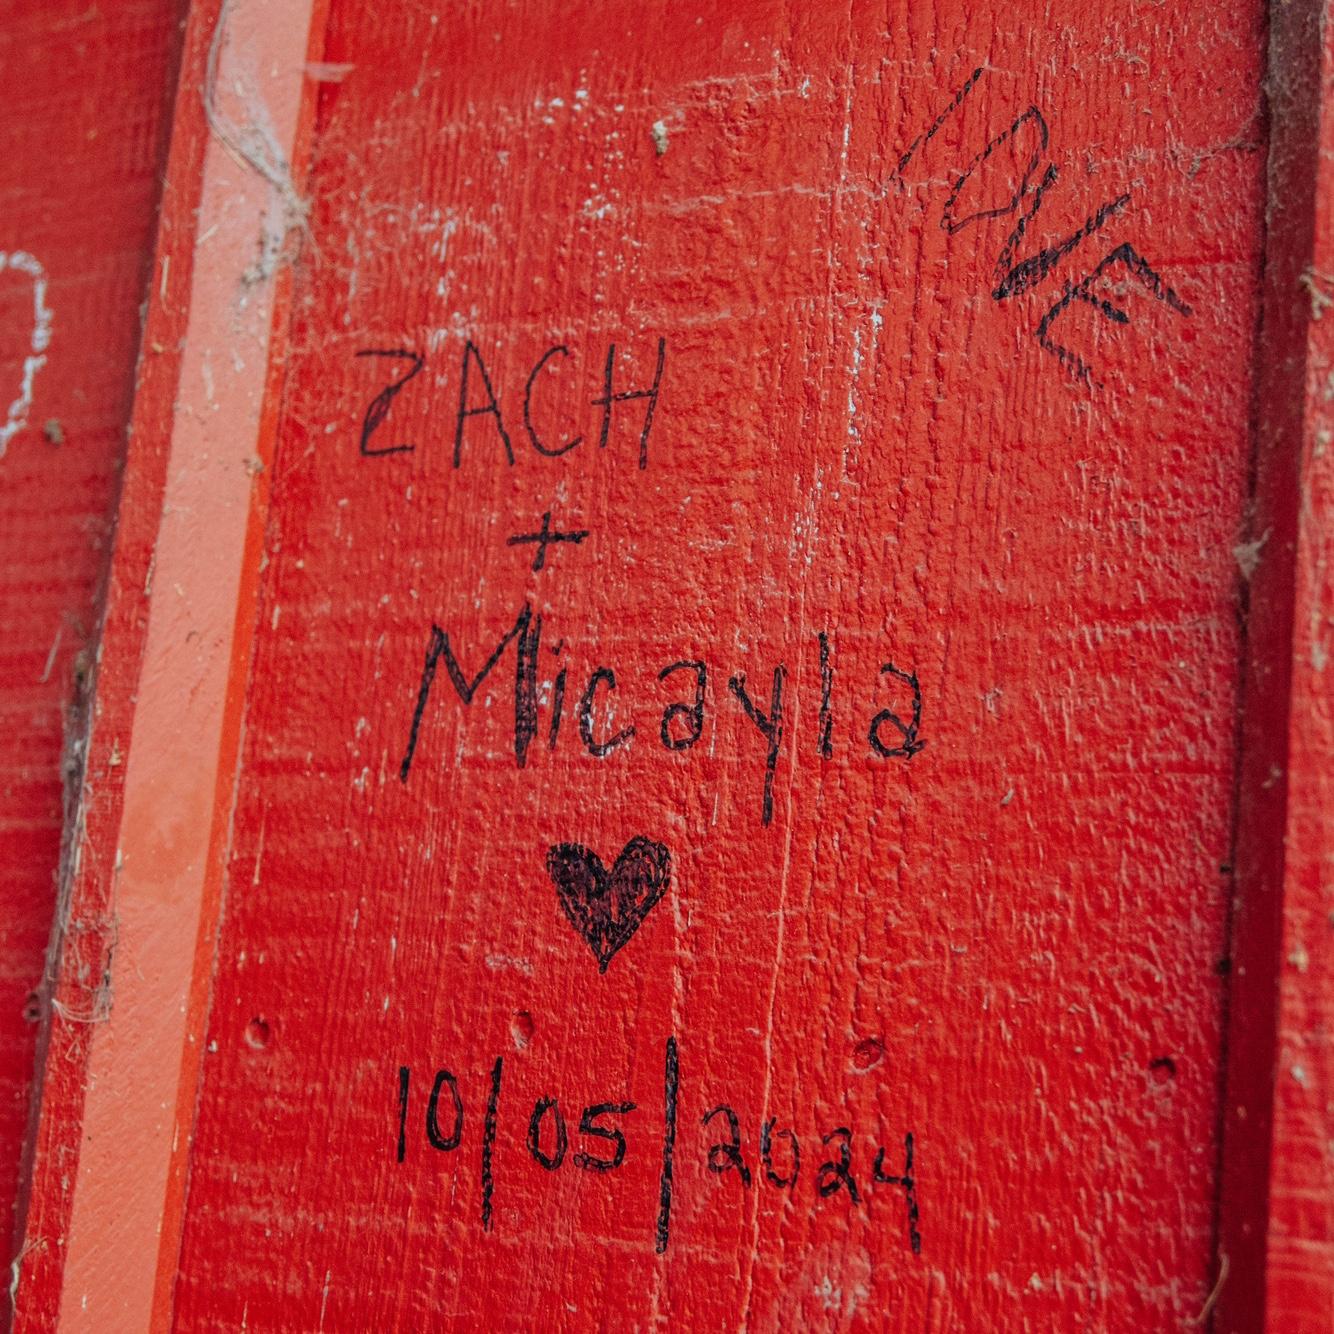 LOVE
ZACH
+
Micayla
♥
10/05/2024